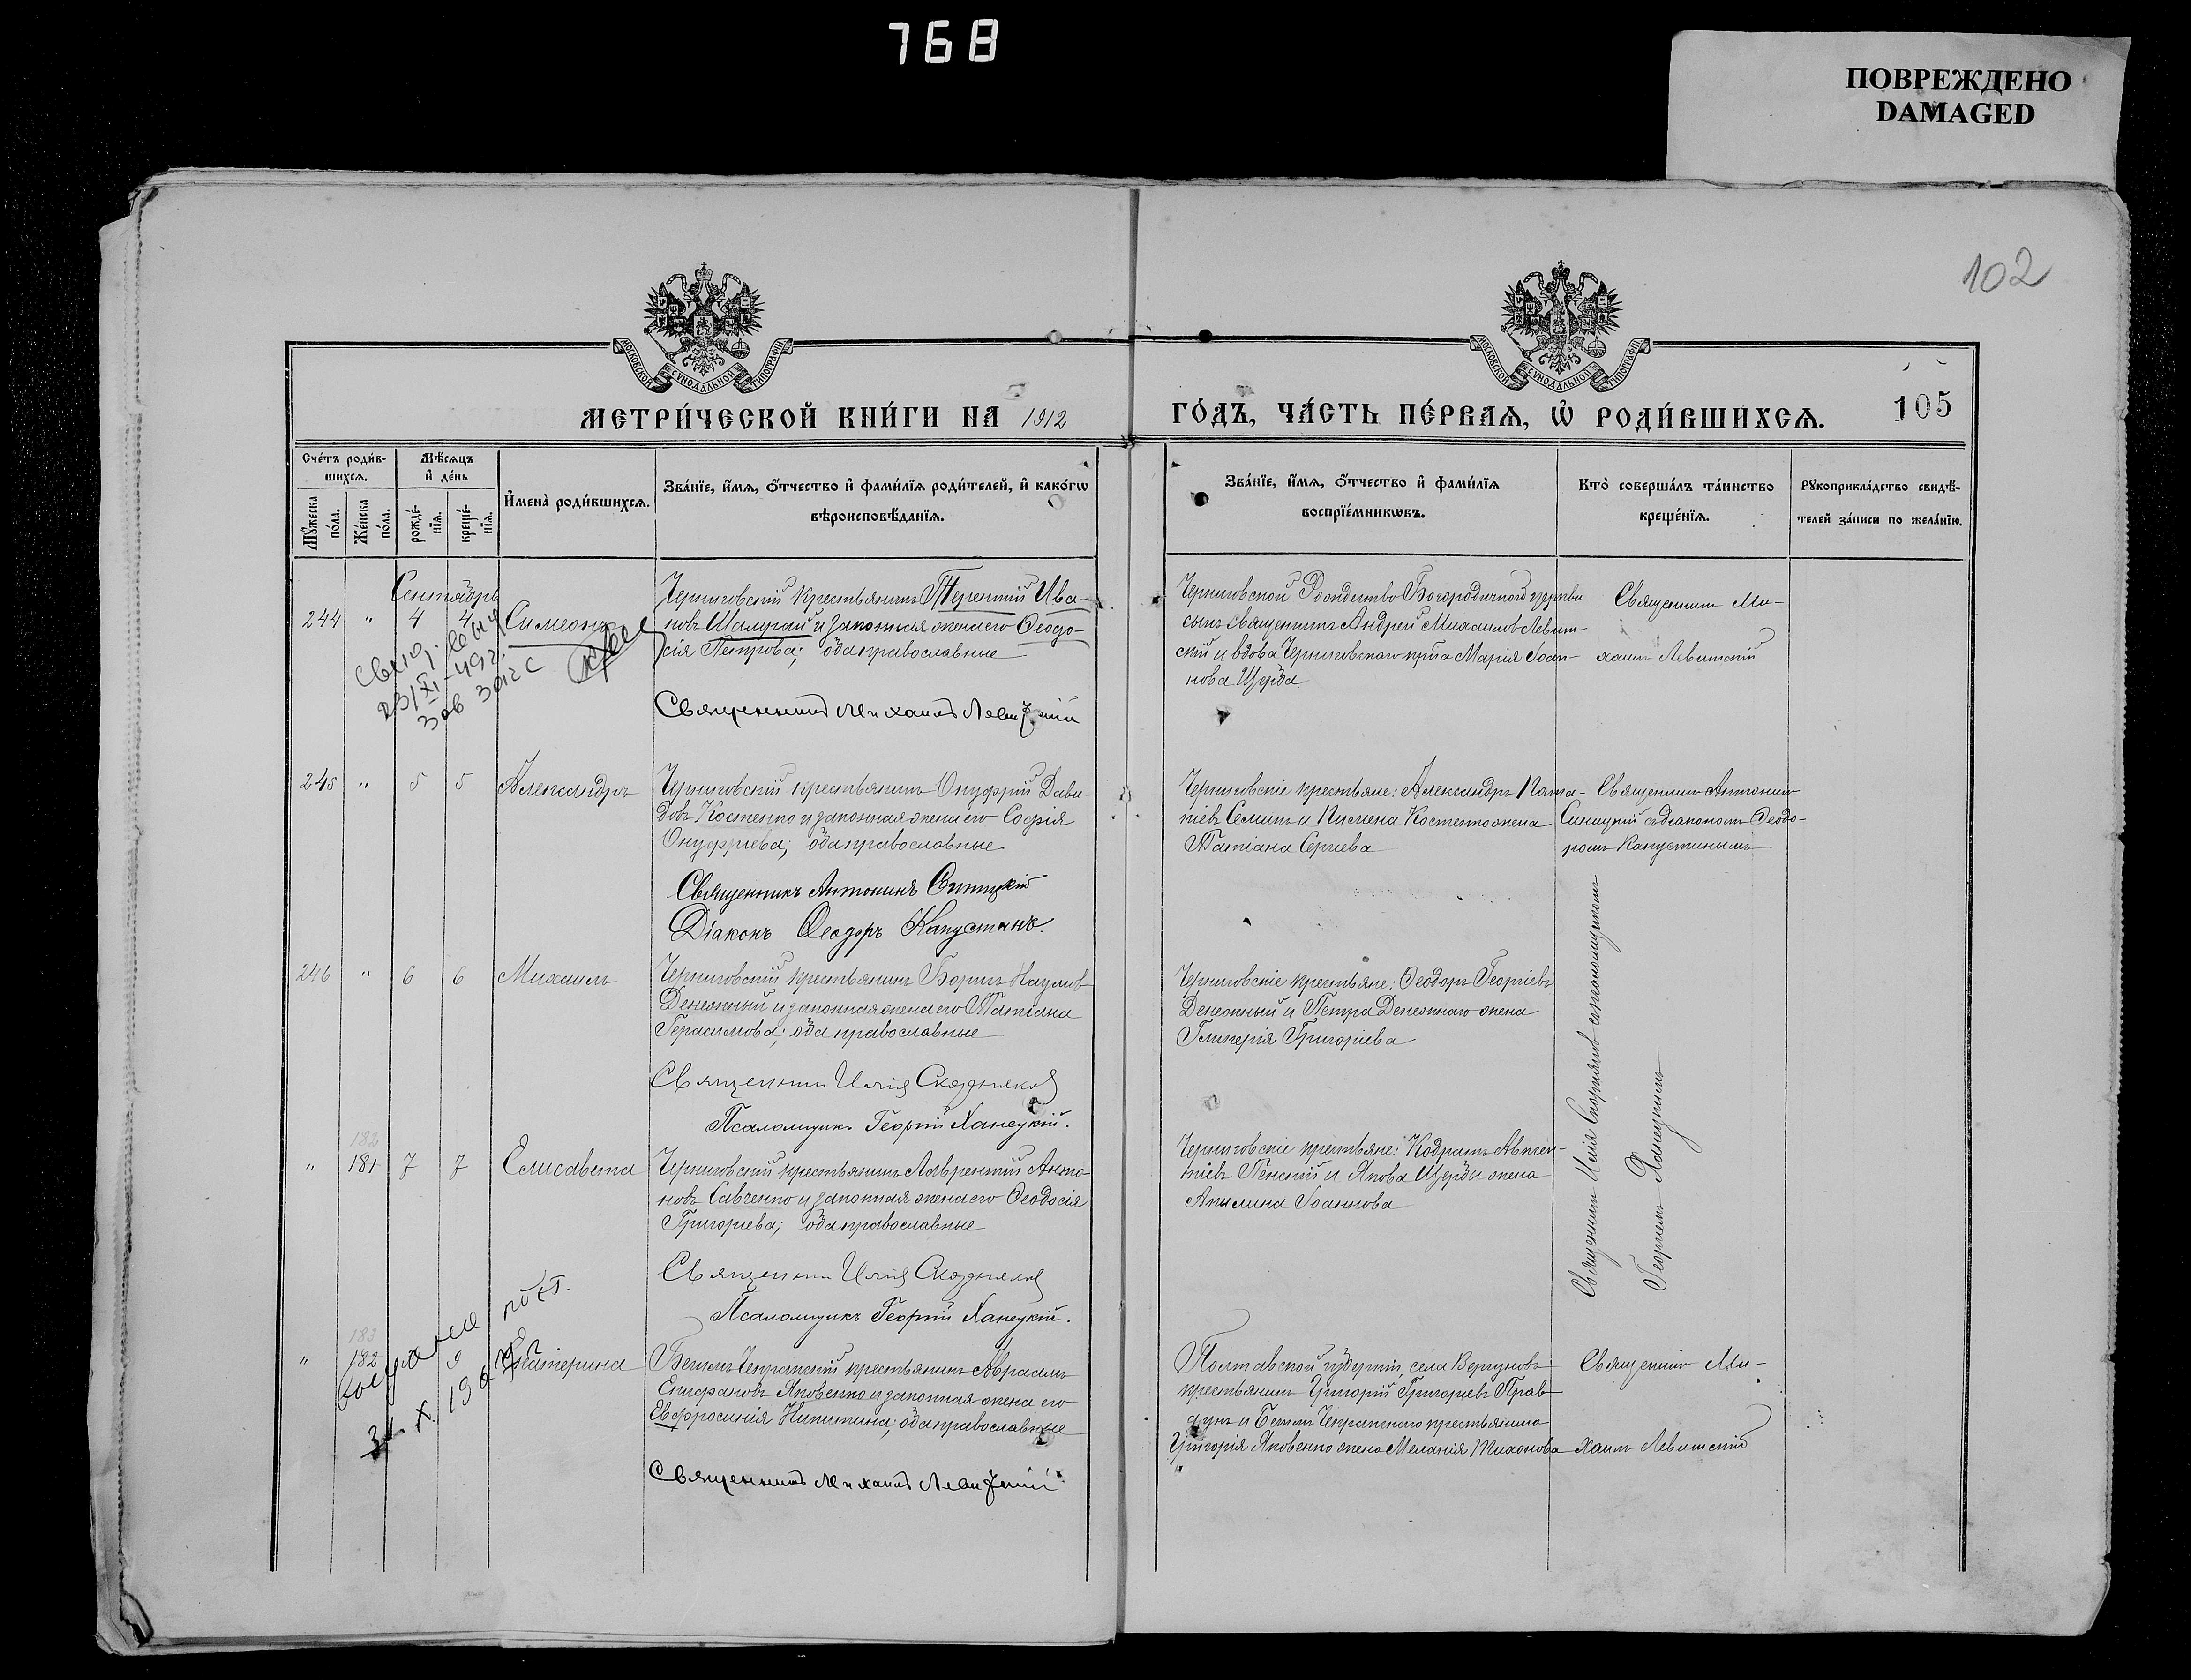 768
ПОВРЕЖДЕНО
DAMAGED
102
МОСКОВСКОЙ СѴНОДАЛЬНОЙ ТИПОГРАФІИ
МОСКОВСКОЙ СѴНОДАЛЬНОЙ ТИПОГРАФІИ
МЕТРИ́ЧЕСКОЙ КНИ́ГИ НА 1912
ГО́ДЪ, ЧА́СТЬ ПЕ́РВАѦ, Ѡ҆ РОДИ́ВШИХСѦ.
105
Сче́тъ роди́в-
шихсѧ.
Мꙋ́жеска по́ла.
Же́нска по́ла.
Мѣ́сѧцъ
и҆ де́нь
рожде́-
нїѧ.
креще́-
нїѧ.
И҆мена̀ роди́вшихсѧ.
Зва́нїе, и҆́мѧ, ѻ҆́тчество и҆ фами́лїѧ роди́телей, и҆ како́гѡ
вѣроисповѣ́данїѧ.
Зва́нїе, и҆́мѧ, ѻ҆́тчество и҆ фами́лїѧ
воспрїе́мникѡвъ.
Кто̀ соверша́лъ та́инство
креще́нїѧ.
Рꙋкоприкла́дство свидѣ́-
телей за́писи по жела́нїю.
Сентябрь
244 " 4 4 Симеонъ
Черниговскій крестьянинъ Терентій Ива-
новъ Шамрай и законная жена его Ѳеодо-
сія Петрова; оба православные
Священникъ Михаилъ Левитскій
Черниговской Рождество Богородичной церкви
сынъ священника Андрей Михаиловъ Левит-
скій и вдова Черниговскаго кр-на Марія Іоан-
нова Щерба
Священникъ Ми-
хаилъ Левитскій
23/XI-49г.
245 " 5 5 Александръ
Черниговскій крестьянинъ Онуфрій Дави-
довъ Костенко и законная жена его Софія
Онуфріева; оба православные
Священникъ Антонинъ Синицкій
Діаконъ Ѳеодоръ Капустинъ.
Черниговскіе крестьяне: Александръ
Семинъ и Костенко жена
Татіана Сергіева
Священникъ Антонинъ
Синицкій съ діакономъ Ѳеодо-
ромъ Капустинымъ
246 " 6 6 Михаилъ
Черниговскій крестьянинъ Борисъ Наумовъ
Денежный и законная жена его Татіана
Герасимова; оба православные
Священникъ Илія Скорняковъ
Псаломщикъ Георгій Ханецкій.
Черниговскіе крестьяне: Ѳеодоръ Георгіевъ
Денежный и Петра Денежнаго жена
Гликерія Григоріева
Священникъ Илія Скорняковъ съ псаломщикомъ
Георгіемъ Ханецкимъ
182
" 181 7 7 Елисавета
Черниговскій крестьянинъ Лаврентій Анто-
новъ Савченко и законная жена его Ѳеодосія
Григоріева; оба православные
Священникъ Илія Скорняковъ
Псаломщикъ Георгій Ханецкій.
Черниговскіе крестьяне: Кодратъ Авксен-
тіевъ Пенскій и Якова Щербы жена
Акилина Іоаннова
183
" 182 9 Екатерина
крестьянинъ Авраамъ
Епифановъ Яковенко и законная жена его
Евфросинія Никитина; оба православные
Священникъ Михаилъ Левитскій
Полтавской губерніи, села Вергуновъ
крестьянинъ Григорій Григорьевъ Прав-
дукъ и крестьянина
Григорія Яковенко жена Меланія
Священникъ Ми-
хаилъ Левитскій